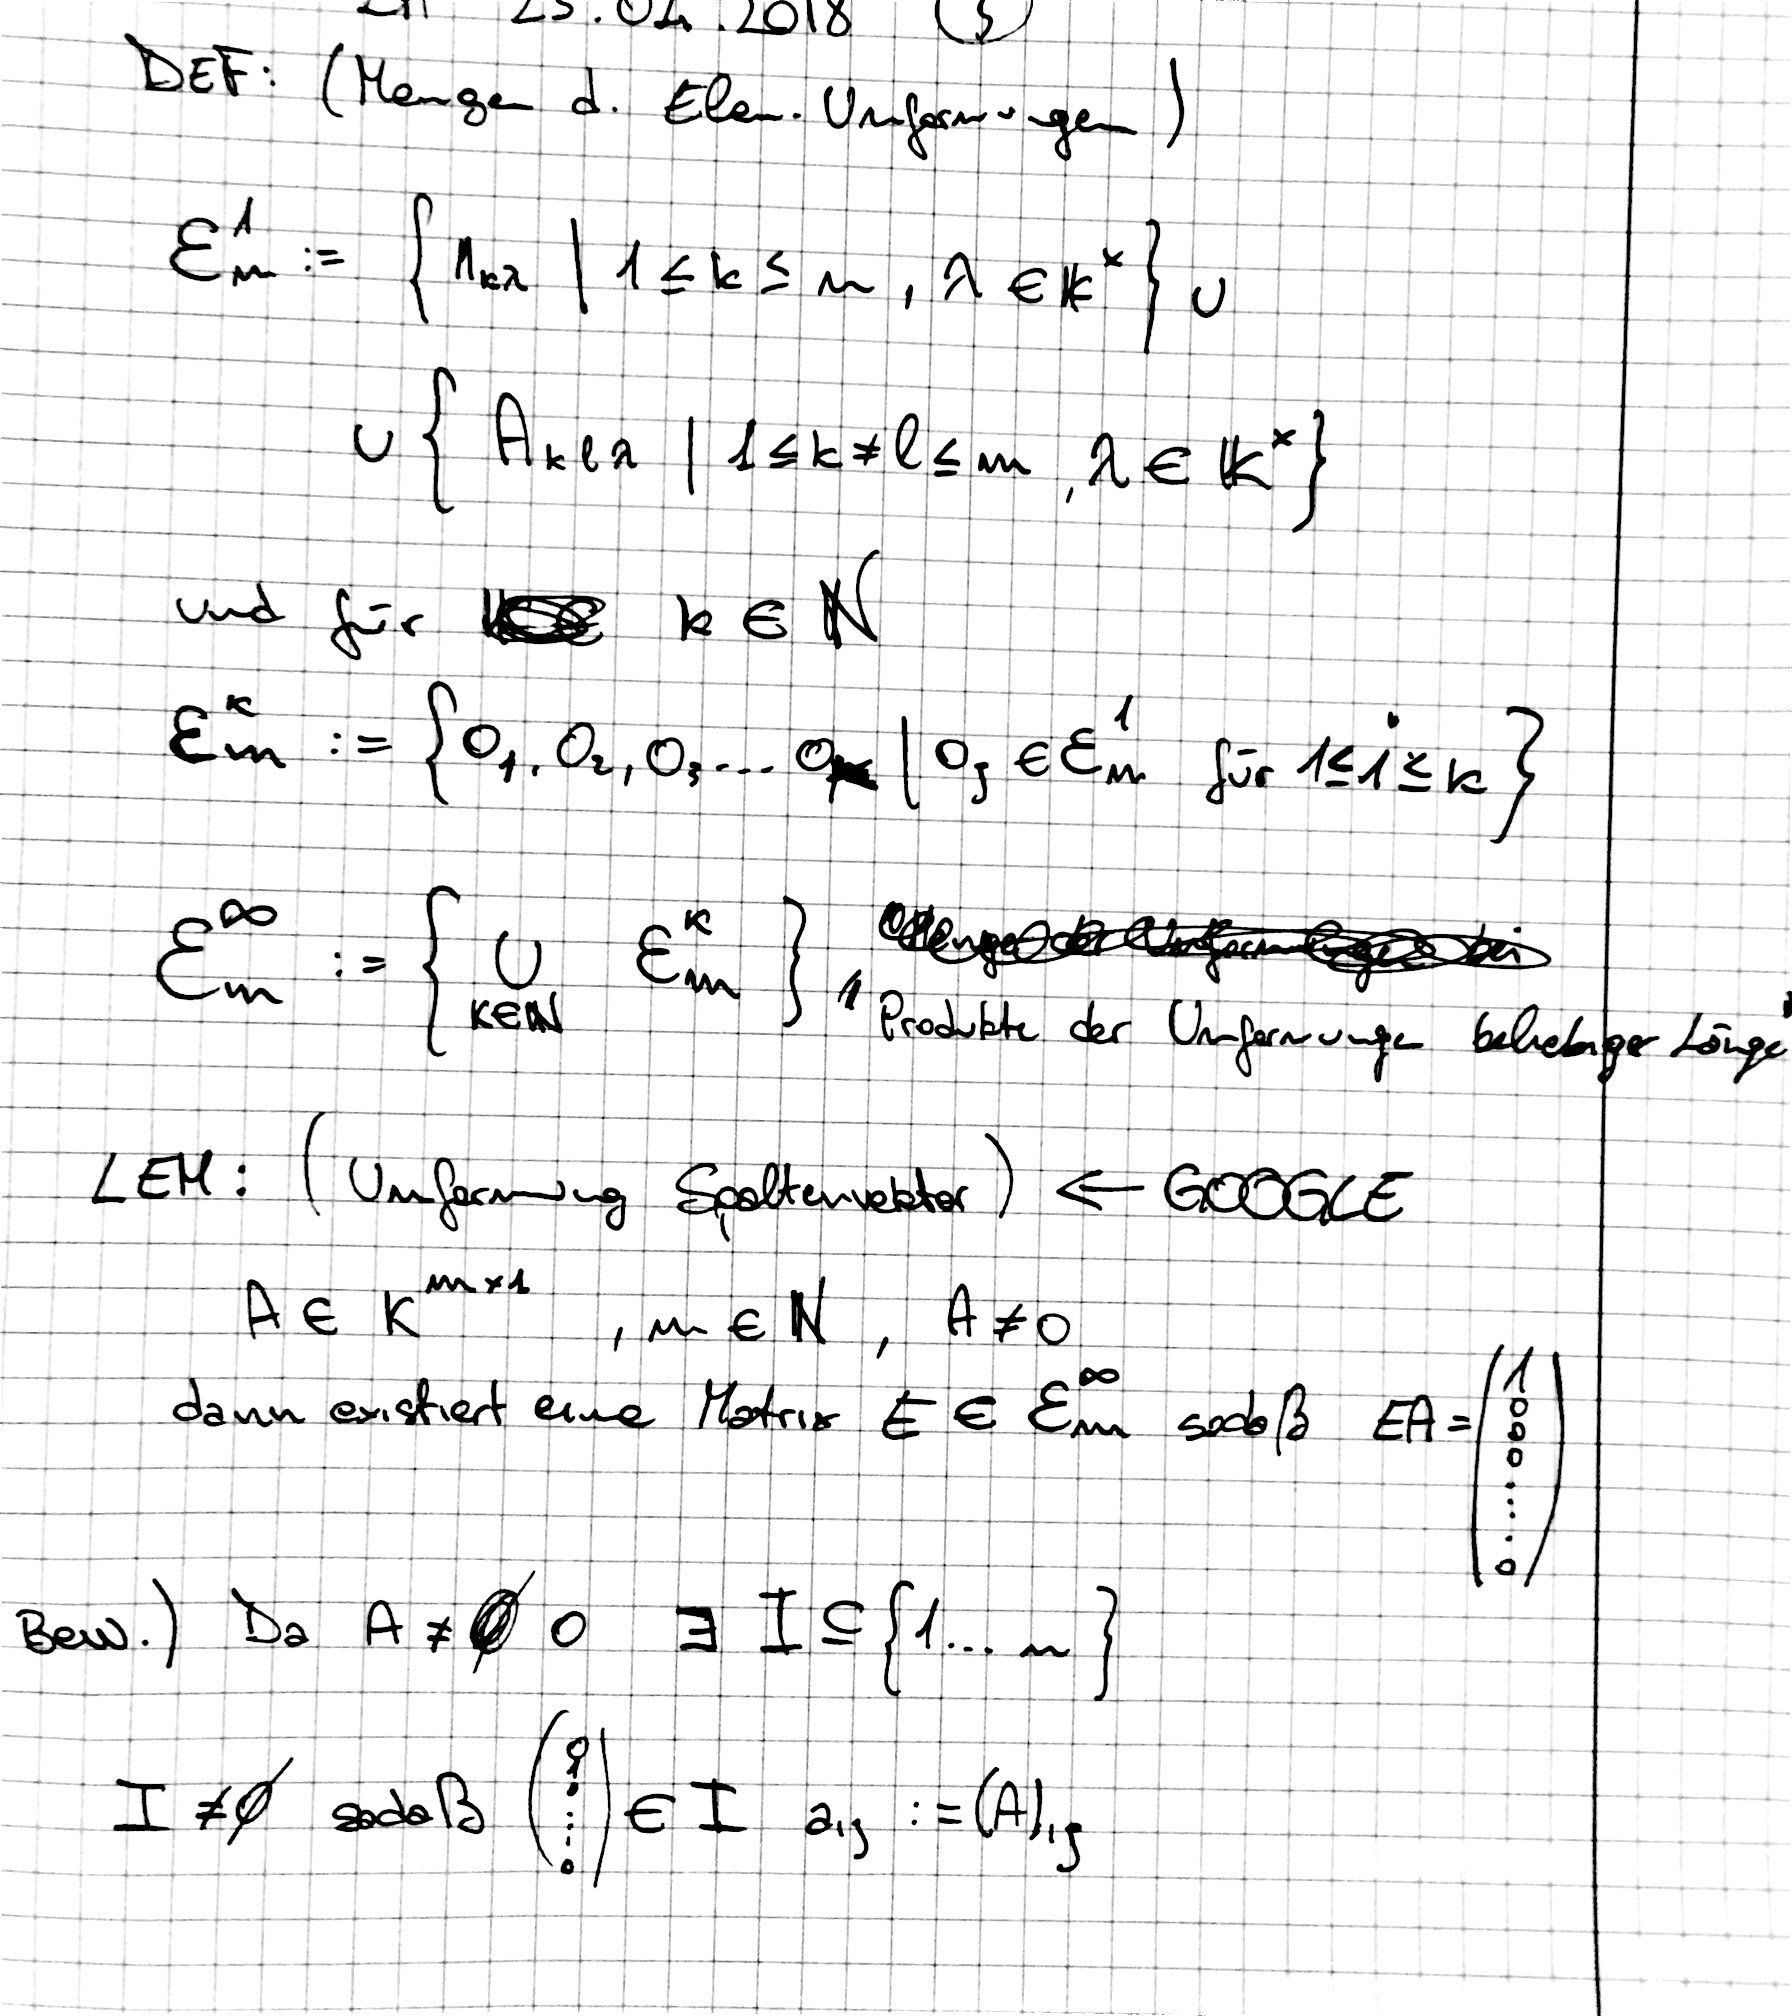 LA 23.04.2018 (3)
DEF: (Mengen d. Elem. Umformungen)
Ɛ_m^1 := { M_{kλ} | 1 ≤ k ≤ m, λ ∈ 𝕂^× } ∪
∪ { A_{klλ} | 1 ≤ k ≠ l ≤ m, λ ∈ 𝕂^× }
und für k ∈ ℕ
Ɛ_m^k := { O_1, O_2, O_3 ... O_k | O_j ∈ Ɛ_m^1 für 1 ≤ i ≤ k }
Ɛ_m^∞ := { ∪_{k∈ℕ} Ɛ_m^k }, "Produkte der Umformungen beliebiger Länge"
LEM: (Umformung Spaltenvektor) ← GOOGLE
A ∈ K^{m×1}, m ∈ ℕ, A ≠ 0
dann existiert eine Matrix E ∈ Ɛ_m^∞ sodaß EA = (1 0 0 0 ... 0)
Bew.) Da A ≠ 0 ∃ I ⊆ {1 ... m}
I ≠ ∅ sodaß (0 ... 0) ∈ I a_{ij} := (A)_{ij}